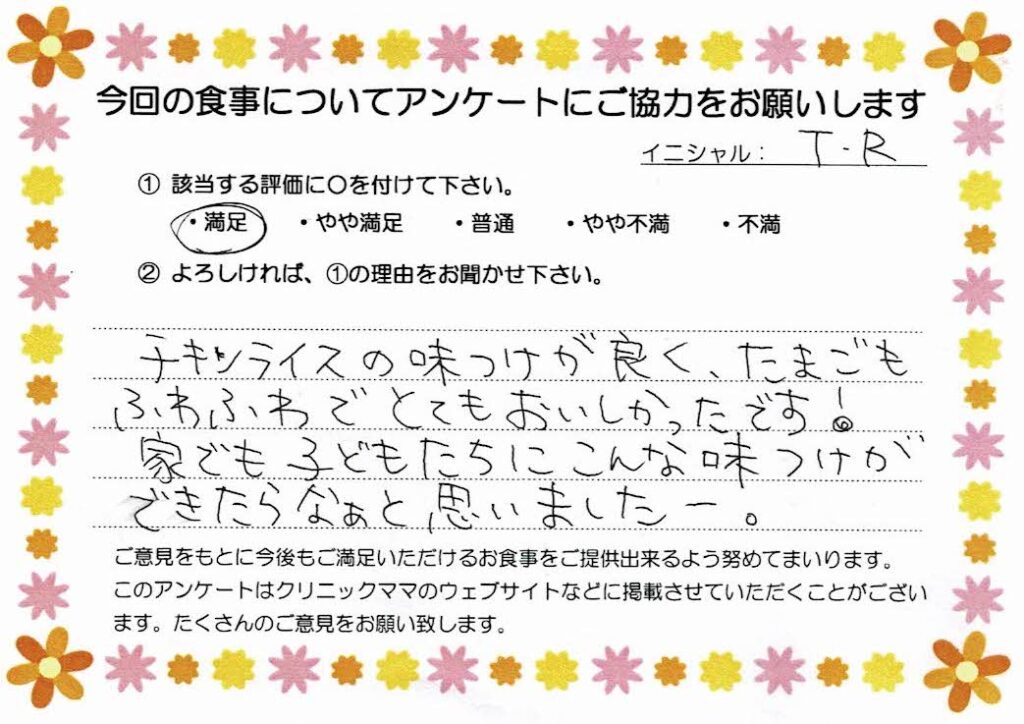 今回の食事についてアンケートにご協力をお願いします
イニシャル： T・R
① 該当する評価に〇を付けて下さい。
・満足 ・やや満足 ・普通 ・やや不満 ・不満
② よろしければ、①の理由をお聞かせ下さい。
チキンライスの味つけが良く、たまごも
ふわふわでとてもおいしかったです!
家でも子どもたちにこんな味つけが
できたらなぁと思いましたー。
ご意見をもとに今後もご満足いただけるお食事をご提供出来るよう努めてまいります。
このアンケートはクリニックママのウェブサイトなどに掲載させていただくことがござい
ます。たくさんのご意見をお願い致します。